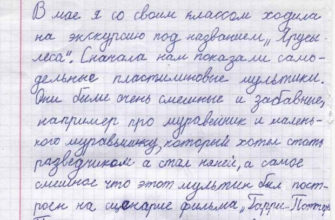 В мае я со своим классом ходила
на экскурсию под названием „Ярусы
леса". Сначала нам показали само-
дельные пластилиновые мультики.
Они были очень смешные и забавные,
например про муравейник и малень-
кого муравьишку, который хотел стать
разведчиком а стал няней, а самое
смешное что этот мультик был пост-
роен на сценарие фильма „Гарри-Поттер